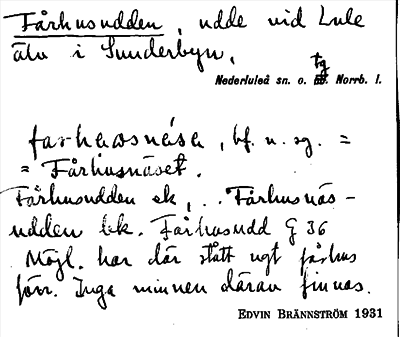 Fårhusudden, udde vid Lule
älv i Sunderbyn.
Nederluleå sn. o. tg. Norrb. l.
farhäʊsnǻsa, bf. n. sg. =
= Fårhusnäset.
Fårhusudden ek, . . Fårhusnäs-
udden bk. Fårhusudd G 36
Möjl. har där stått ngt fårhus
förr. Inga minnen därav finnas.
EDVIN BRÄNNSTRÖM 1931